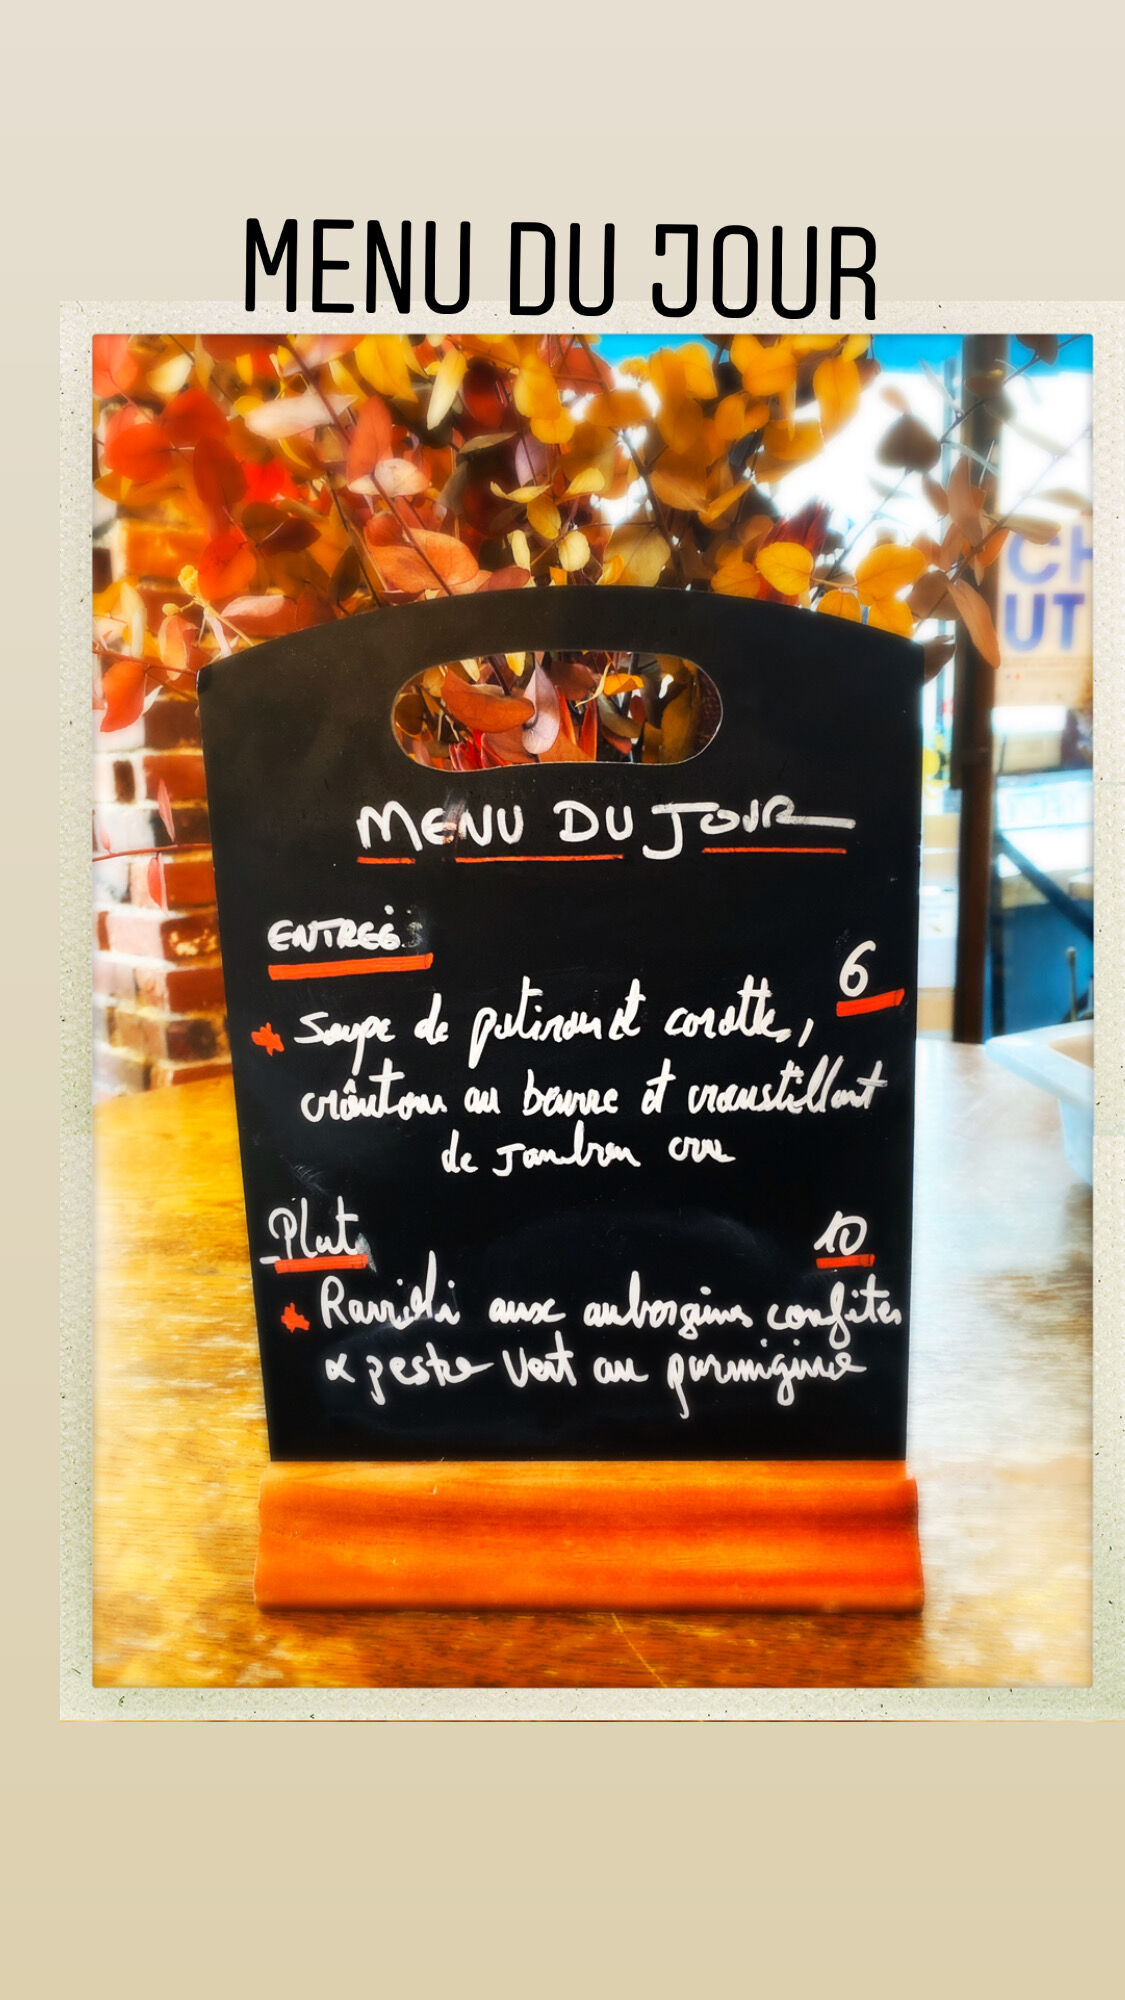 MENU DU JOUR
CH
UT
MENU DU JOUR
ENTREÉ
6
Soupe de potiron et carotte,
croûtons au beurre et croustillant
de jambon cru
Plat
10
Ravioli aux aubergines confites
& pesto vert au parmigiano